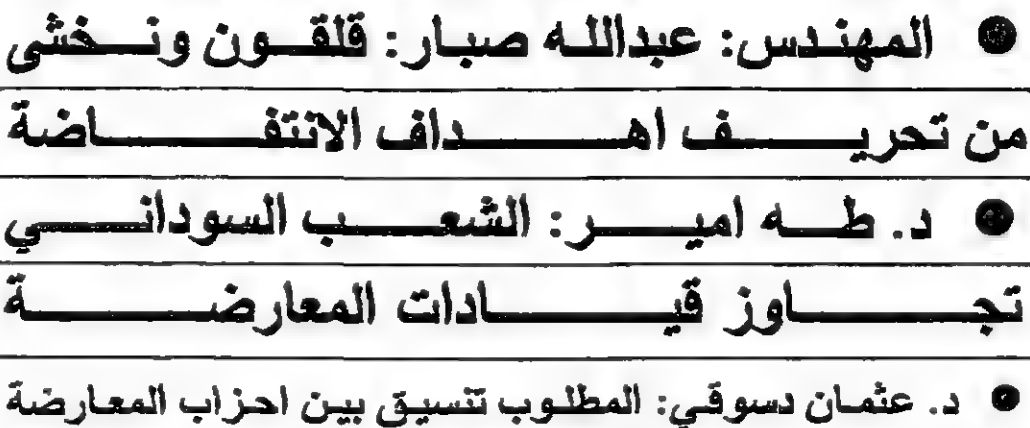 ● المهندس: عبدالله صبار: قلقون ونخشى
من تحريف اهداف الانتفاضة
● د. طه امير: الشعب السوداني
تجاوز قيادات المعارضة
● د. عثمان دسوقي: المطلوب تنسيق بين احزاب المعارضة